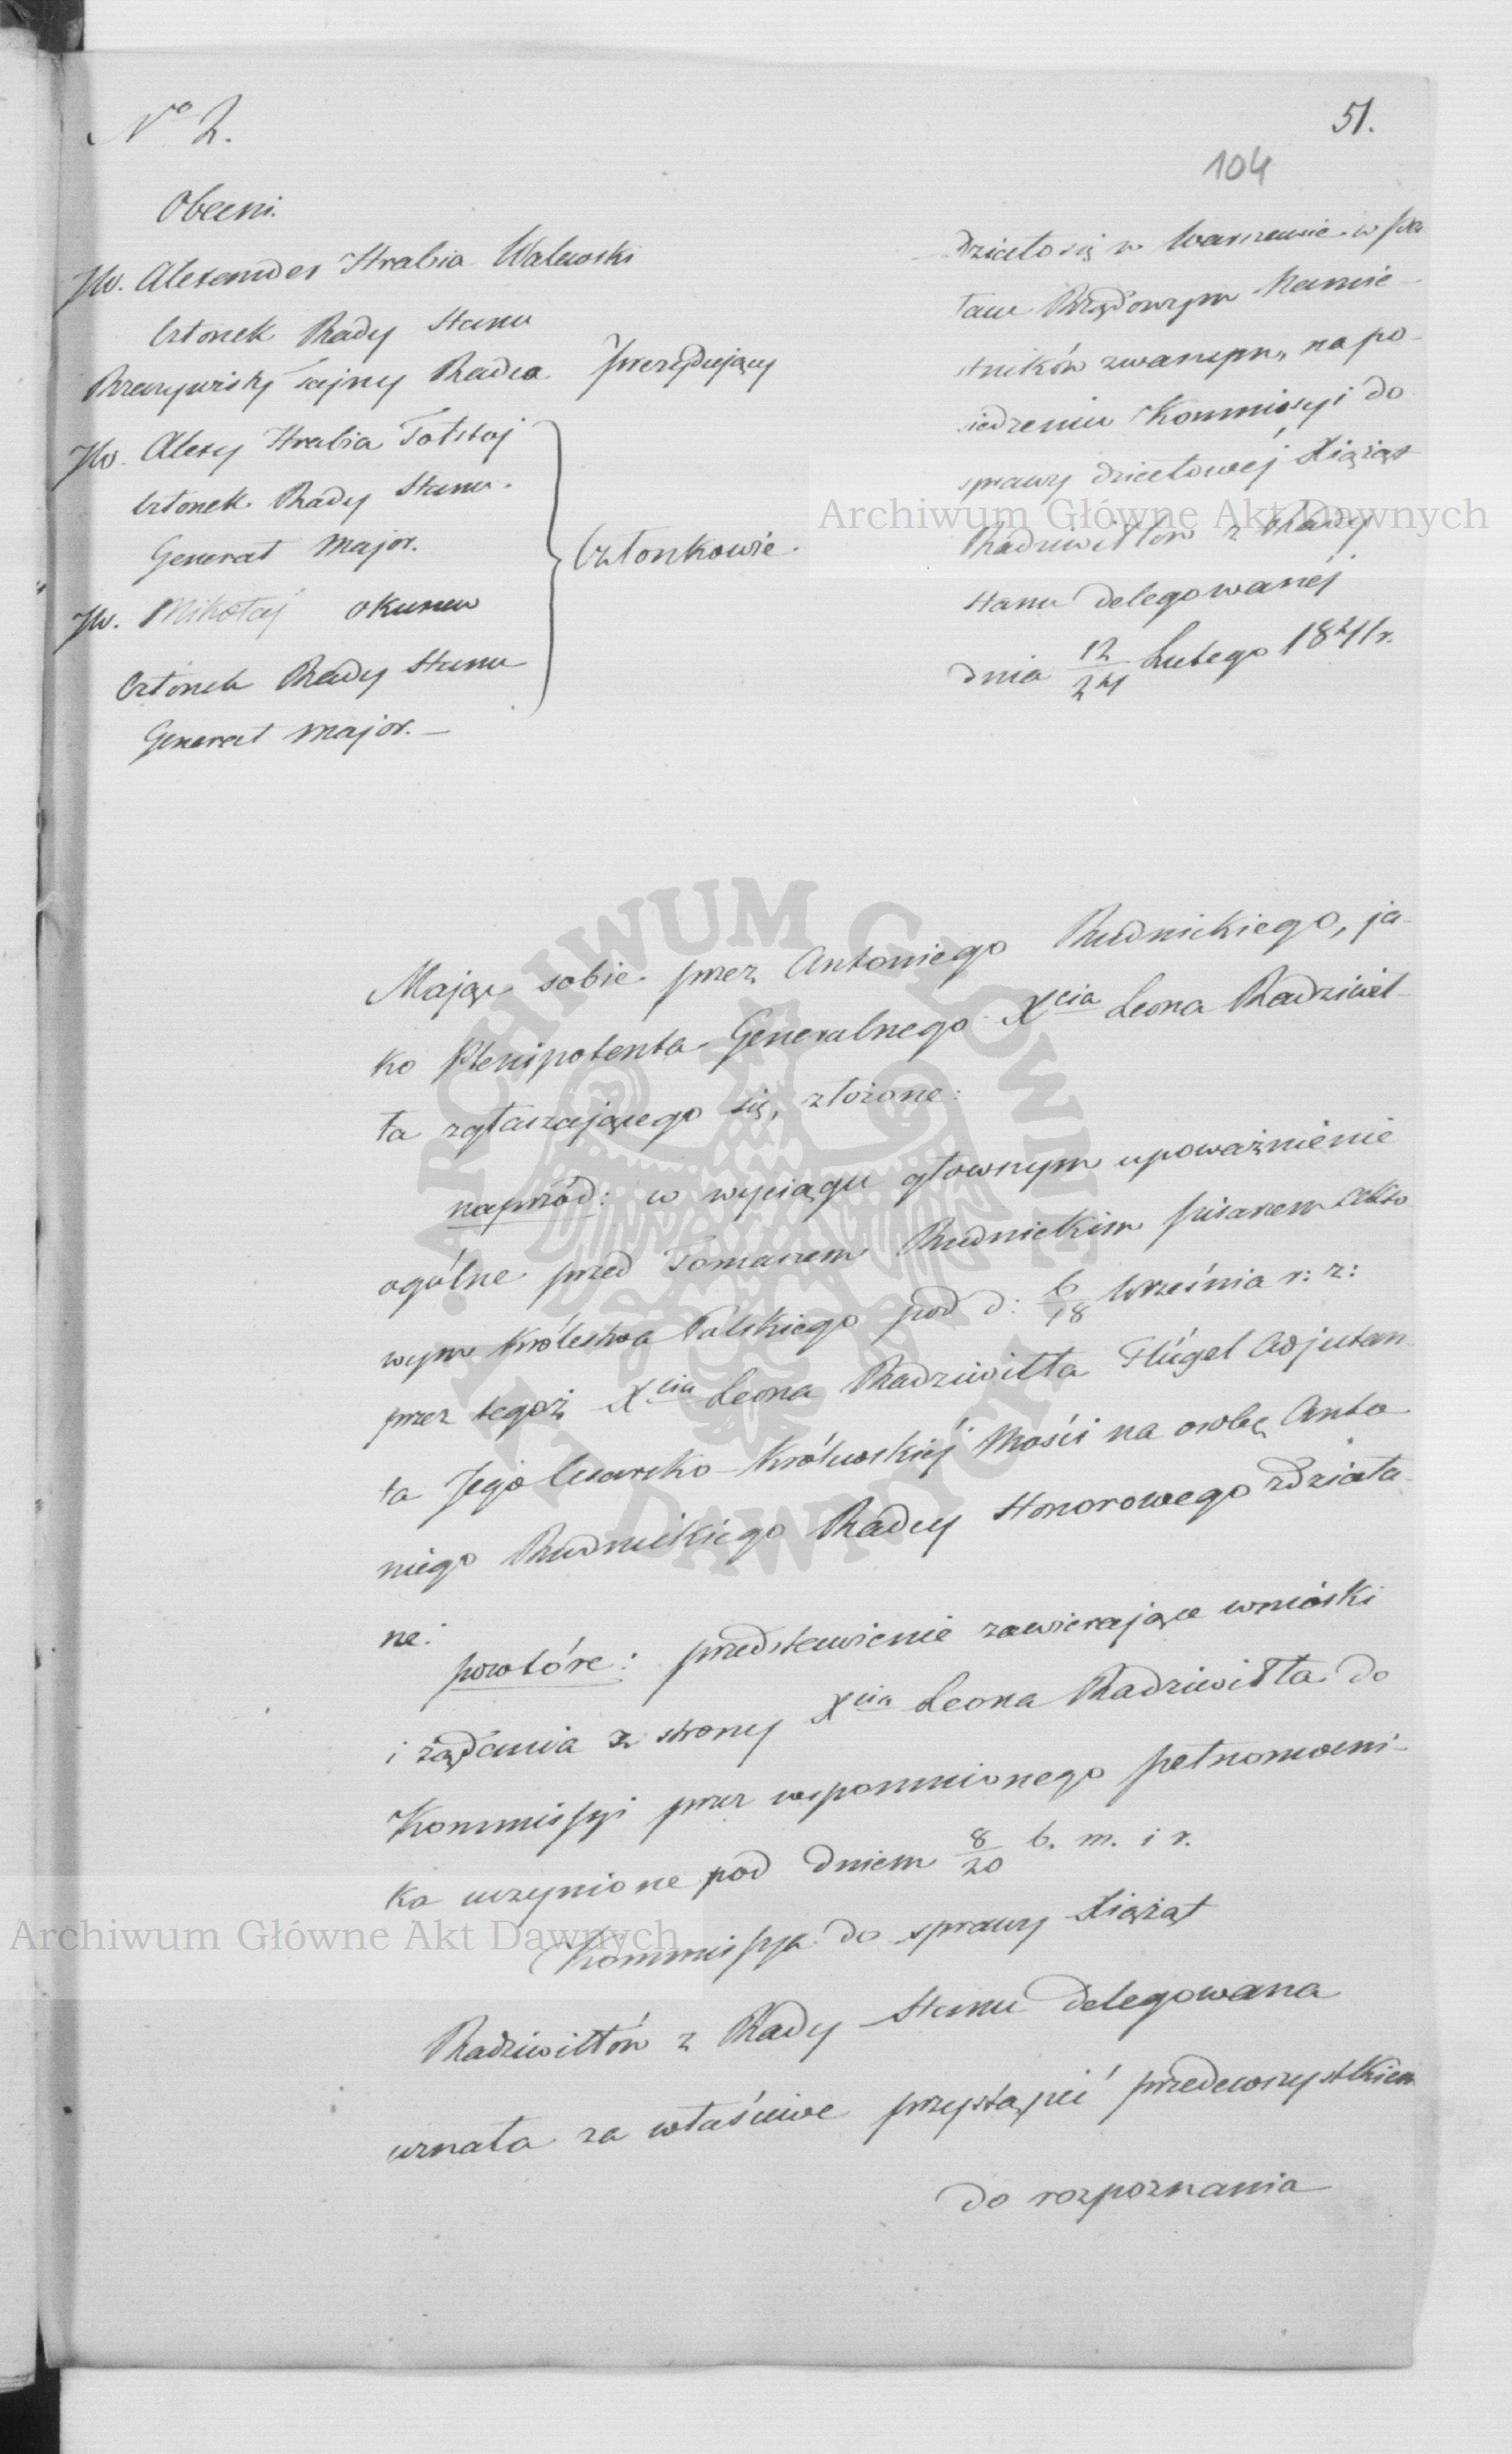 No 2.
51.
104
Obecni.
JW. Alexander Hrabia Walewski
Członek Rady Stanu
Rzeczywisty Tajny Radca prezydujący
JW. Alexy Hrabia Tołstoj
Członek Rady Stanu.
Generał Major.
Członkowie.
JW. Mikołaj Okunew
Członek Rady Stanu
Generał Major. —
Działo się w Warszawie w pa
łacu Rządowym Namie-
stników zwanym, na po-
siedzeniu Kommissyi do
sprawy działowéj Xiążąt
Radziwiłłów z Rady
Stanu delegowanéj
dnia 12/24 Lutego 1841 r.
Mając sobie przez Antoniego Rudnickiego, ja-
ko Plenipotenta Generalnego Xcia Leona Radziwił-
ła zgłaszającego się, złożone:
naprzód: w wyciągu głownym upoważnienie
ogólne przed Tomaszem Rudnickim pisarzem Akto
wym Królestwa Polskiego pod d: 6/18 Września r: z:
przez tegoż Xcia Leona Radziwiłła Flügel Adjutan
ta Jego Cesarsko-Królewskiéj Mości na osobę Anto
niego Rudnickiego Radcy Honorowego zdziała-
ne:
powtóre: przedstawienie zawierające wnioski
i żądania ze strony Xcia Leona Radziwiłła do
Kommissyi przez wspomnionego pełnomocni-
ka uczynione pod dniem 8/20 b. m. i r.
Kommissya do sprawy Xiążąt
Radziwiłłów z Rady Stanu delegowana
uznała za właściwe przystąpić przedewszystkiem
do rozpoznania
Archiwum Główne Akt Dawnych
Archiwum Główne Akt Dawnych
ARCHIWUM GŁÓWNE AKT DAWNYCH